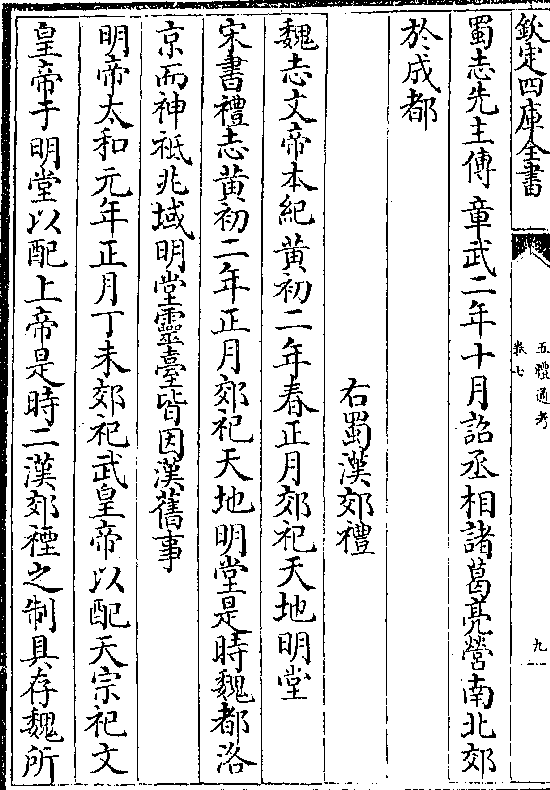 欽定四庫全書
五禮通考
卷七
九
蜀志先主傳章武二年十月詔丞相諸葛亮營南北郊
於成都
右蜀漢郊禮
魏志文帝本紀黃初二年春正月郊祀天地明堂
宋書禮志黃初二年正月郊祀天地明堂是時魏都洛
京而神祇兆域明堂靈臺皆因漢舊事
明帝太和元年正月丁未郊祀武皇帝以配天宗祀文
皇帝于明堂以配上帝是時二漢郊禋之制具存魏所